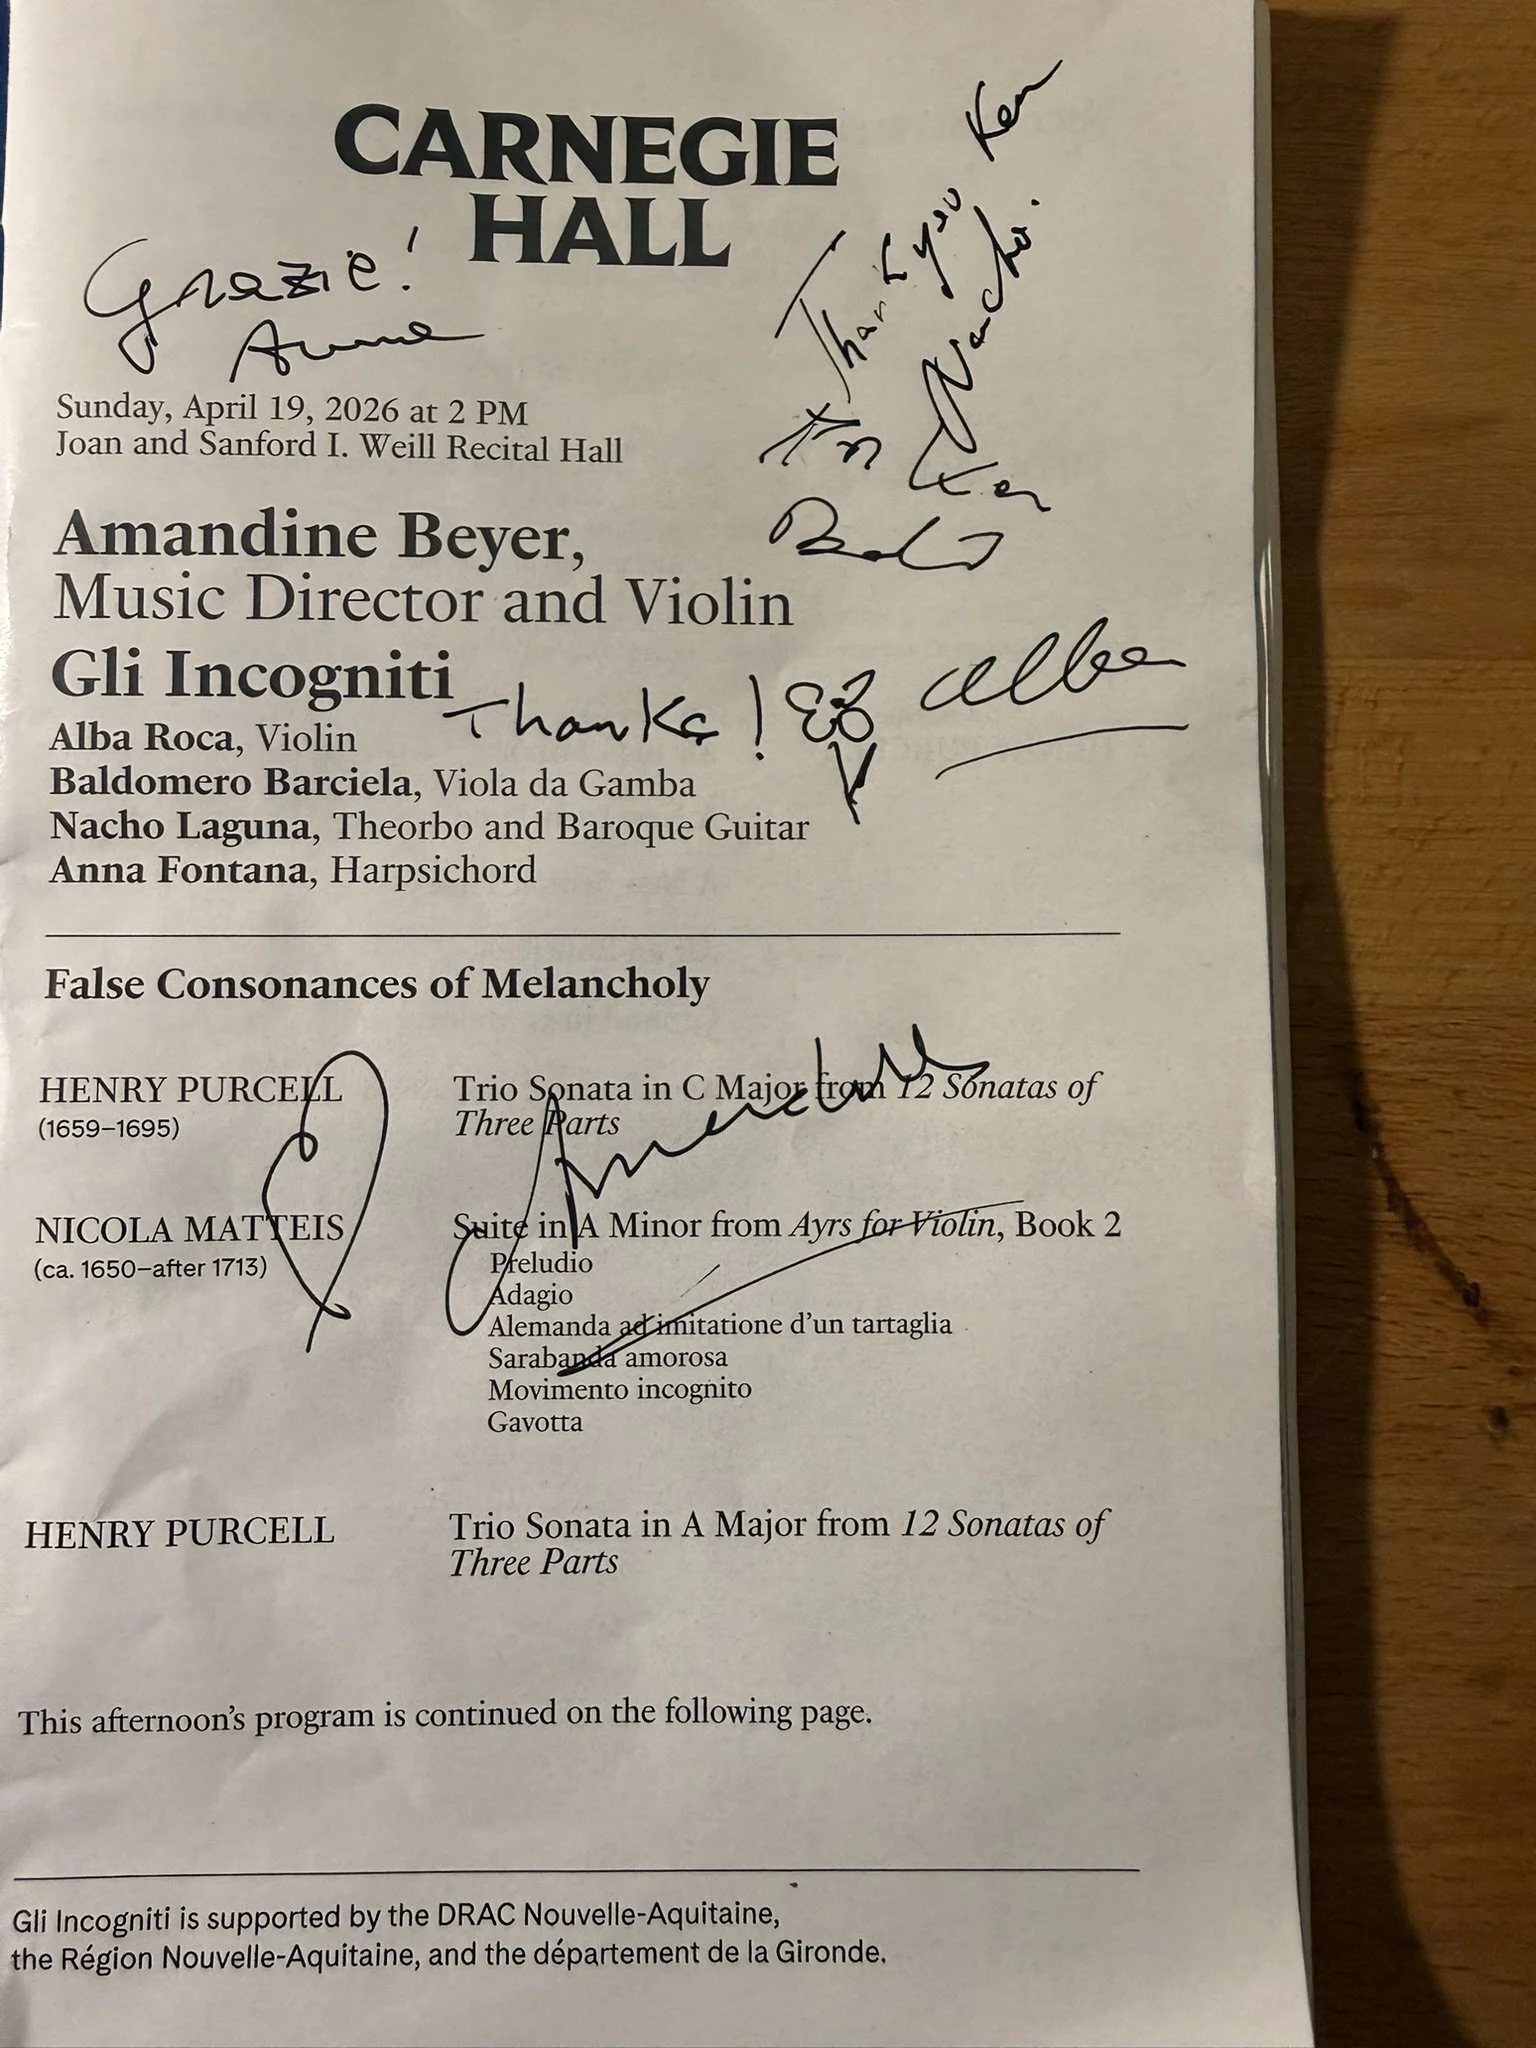 CARNEGIE
HALL
Grazie!
Anna
Thank you Ken
Nacho.
Ken
Sunday, April 19, 2026 at 2 PM
Joan and Sanford I. Weill Recital Hall
Amandine Beyer,
Music Director and Violin
Gli Incogniti
Thanks!
Alba
Alba Roca, Violin
Baldomero Barciela, Viola da Gamba
Nacho Laguna, Theorbo and Baroque Guitar
Anna Fontana, Harpsichord
False Consonances of Melancholy
HENRY PURCELL
(1659–1695)
Trio Sonata in C Major from 12 Sonatas of
Three Parts
Amandine
NICOLA MATTEIS
(ca. 1650–after 1713)
Suite in A Minor from Ayrs for Violin, Book 2
Preludio
Adagio
Alemanda ad imitatione d'un tartaglia
Sarabanda amorosa
Movimento incognito
Gavotta
HENRY PURCELL
Trio Sonata in A Major from 12 Sonatas of
Three Parts
This afternoon's program is continued on the following page.
Gli Incogniti is supported by the DRAC Nouvelle-Aquitaine,
the Région Nouvelle-Aquitaine, and the département de la Gironde.